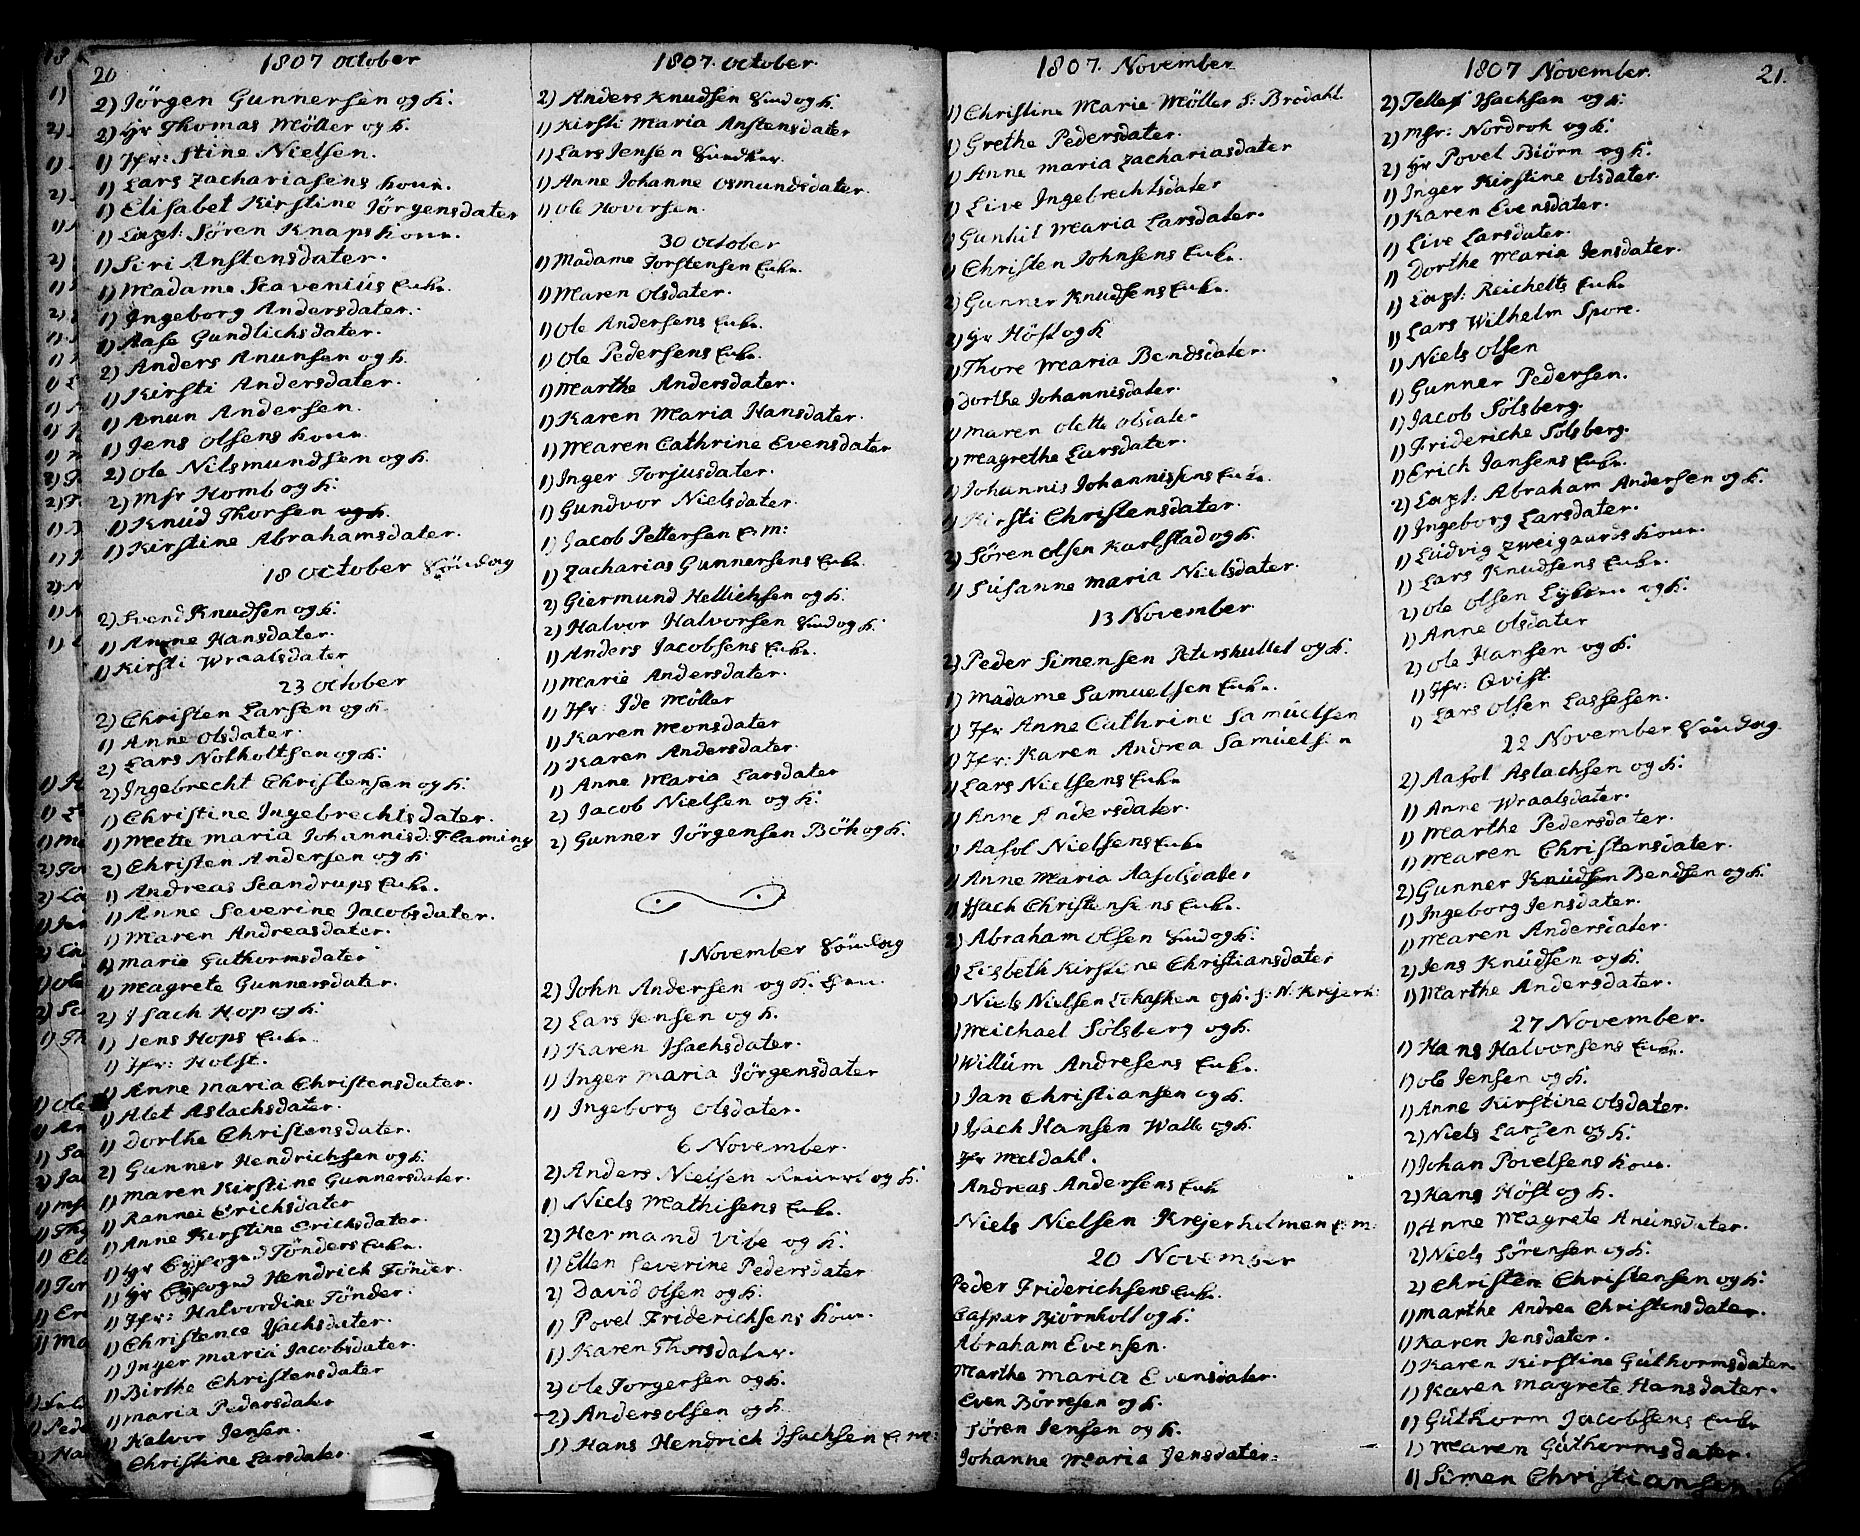 20
1807 October
2) Jörgen Gunnersen og k.
2) Hr Thomas Möller og k.
1) Jfr: Stine Nielsen.
1) Lars Zachariasens kone.
1) Elisabet Kirstine Jörgensdater
1) Capt: Sören Knaps kone.
1) Siri Anstensdater.
1) Madame Scavenius Enke.
1) Ingeborg Andersdater.
1) Aase Gundlichsdater.
2) Anders Anunsen og k.
1) Kirsti Andersdater.
1) Anun Andersen.
1) Jens Olsens kone
2) Ole Nilsmundsen og k.
2) Msr Homb og k:
1) Knud Thorsen og k.
1) Kirstine Abrahamsdater.
18 October Söndag
2) Svend Knudsen og k:
1) Anne Hansdater.
1) Kirsti Wraalsdater
23 October
2) Christen Larsen og k
1) Anne Olsdater.
2) Lars Notholtsen og k:
2) Ingebrecht Christensen og k.
1) Christine Ingebrechtsdater.
1) Mette Maria Johannisd: Flaming
2) Christen Andersen og k
1) Andreas Scandrups Enke.
1) Anne Severine Jacobsdater.
1) Maren Andreasdater.
1) Marie Guthormsdater
1) Magrete Gunnersdater.
2) Isach Hop og k:
1) Jens Hops Enke.
1) Jfr: Holst.
1) Anne Maria Christensdater.
1) Alet Aslachsdater.
1) Dorthe Christensdater.
2) Gunner Hendrichsen og k.
1) Maren Kirstine Gunnersdater.
1) Rannei Erichsdater
1) Anne Kirstine Erichsdater.
1) Hr Byfogud Tönders Enke.
1) Hr Byfogud Hendrich Tönder.
1) Jfr: Halvordine Tönder.
1) Christence Isachsdater.
1) Inger Maria Jacobsdater.
1) Birthe Christensdater
1) Maria Pedersdater
1) Halvor Jensen.
Christine Larsdater
1807. October.
2) Anders Knudsen Smed og k.
1) Kirsti Maria Anstensdater
1) Lars Jensen
1) Anne Johanne Osmundsdater.
1) Ole Hoversen.
30 October
1) Madame Torstensen Enke.
1) Maren Olsdater.
1) Ole Andersens Enke.
1) Ole Pedersens Enke.
1) Marthe Andersdater.
1) Karen Maria Hansdater.
1) Maren Cathrine Evensdater
1) Inger Torjusdater.
1) Gundvor Nielsdater.
1) Jacob Pettersen E. M:
1) Zacharias Gunnersens Enke.
2) Giermund Hellichsen og k:
2) Halvor Halvorsen Smed og k:
1) Anders Jacobsens Enke.
1) Marie Andersdater.
1) Jfr: Ide Möller
1) Karen Monsdater
1) Karen Andersdater.
1) Anne Maria Larsdater
2) Jacob Nielsen og k:
2) Gunner Jörgensen Böh og k.
1 November Söndag
2) John Andersen og k.
2) Lars Jensen og k.
1) Karen Isachsdater.
1) Inger Maria Jörgensdater
1) Ingeborg Olsdater.
6 November.
2) Anders Nielsen og k:
1) Niels Mathisens Enke.
2) Hermand Vibe og k:
1) Ellen Severine Pedersdater
2) David Olsen og k:
1) Povel Friderichsens kone.
1) Karen Thorsdater.
2) Ole Torgersen og k.
2) Anders Olsen og k
1) Hans Hendrich Isachsen E. M:
1807. November
1) Christine Marie Möller S: Brodahl
1) Grethe Pedersdater.
1) Anne Maria Zachariasdater
1) Live Ingebrechtsdater
1) Gunhil Maria Larsdater.
1) Christen Johnsens Enke.
2) Gunner Knudsens Enke.
2) Hr Höst og k
1) Thore Maria Bendsdater.
1) Dorthe Johannisdater.
1) Maren Olette Olsdater
1) Magrethe Larsdater.
1) Johannis Johannissens Enke.
1) Kirsti Christensdater.
2) Sören Olsen Karlstad og k.
1) Susanne Maria Nielsdater.
13 November
2) Peder Simensen Petershullet og k.
1) Madame Samuelsen Enke.
1) Jfr Anne Cathrine Samuelsen
1) Jfr: Karen Andrea Samuelsen
1) Lars Nielsens Enke
1) Anne Andersdater.
1) Aasol Nielsens Enke
1) Anne Maria Aasolsdater
1) Isach Christensens Enke.
2) Abraham Olsen Smed og k:
1) Lisbeth Kirstine Christiansdater
) Niels Nielsen og k. J: N: Krejerh:
) Michael Solsberg og k.
) Willum Andresens Enke.
) Jan Christiansen og k.
) Isach Hansen Walle og k.
Jfr Meldahl.
Andreas Andersens Enke
Niels Nielsen Krejerholmen E. M:
20 November
Peder Friderichsens Enke.
Caspar Biörnholt og k.
Abraham Evensen.
Marthe Maria Evensdater.
Even Börresen og k.
Sören Jensen og k.
Johanne Maria Jensdater.
1807 November. 21.
2) Tellef Isachsen og k.
2) Msr: Nordrok og k:
2) Hr Povel Biörn og k:
1) Inger Kirstine Olsdater.
1) Karen Evensdater.
1) Live Larsdater.
1) Dorthe Maria Jensdater.
1) Capt: Reichelts Enke
1) Lars Wilhelm Spore.
1) Niels Olsen
1) Gunner Pedersen.
1) Jacob Solsberg.
1) Frideriche Solsberg.
1) Erich Jansens Enke.
2) Capt: Abraham Andersen og k.
1) Ingeborg Larsdater.
1) Ludvig Zweigaards kone.
1) Lars Knudsens Enke.
2) Ole Olsen og k:
1) Anne Olsdater
2) Ole Hansen og k:
1) Jfr: Qvist
1) Lars Olsen Lassesen.
22 November Söndag.
2) Aasol Aslachsen og k:
1) Anne Wraalsdater.
1) Marthe Pedersdater.
1) Maren Christensdater.
2) Gunner Knudsen Bendsen og k:
1) Ingeborg Jensdater.
1) Maren Andersdater.
2) Jens Knudsen og k.
1) Marthe Andersdater.
27 November.
1) Hans Halvorsens Enke.
1) Ole Jensen og k.
1) Anne Kirstine Olsdater.
2) Niels Larsen og k.
1) Johan Povelsens kone.
2) Hans Höst og k.
1) Anne Magrete Anunsdater.
2) Niels Sörensen og k.
2) Christen Christensen og k:
1) Marthe Andrea Christensdater.
1) Karen Jensdater.
1) Karen Kirstine Guthormsdater
1) Karen Magrete Hansdater.
1) Guthorm Jacobsens Enke
1) Maren Guthormsdater.
1) Simen Christiansen